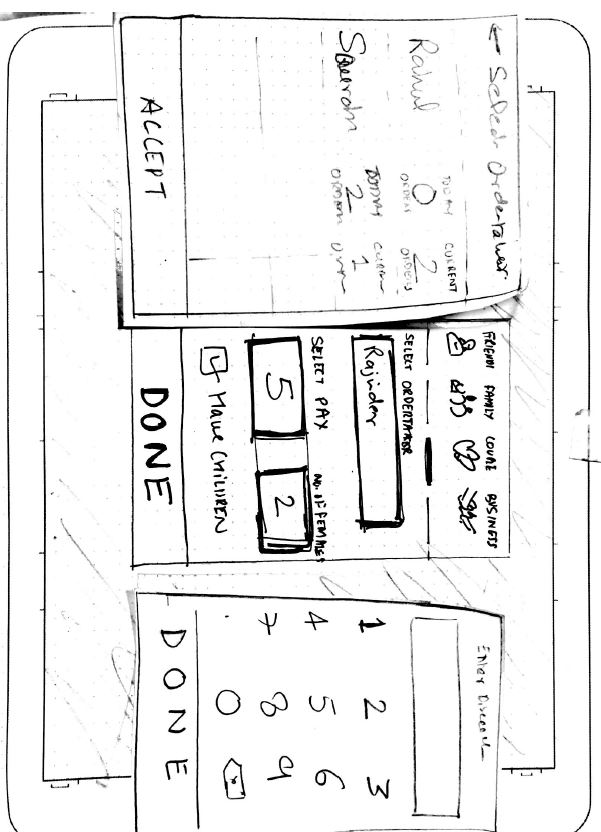 ← Select Ordertaker
TODAY CURRENT
Rahul 0 2
ORDERS ORDERS
TODAY
Saurabh 2 1
ORDERS
ACCEPT
FRIENDS FAMILY COUPLE BUSINESS
SELECT ORDERTAKER
Rajinder
SELECT PAX NO. OF FEMALES
5 2
HAVE CHILDREN
DONE
Enter Discount
1 2 3
4 5 6
7 8 9
. 0 x
DONE